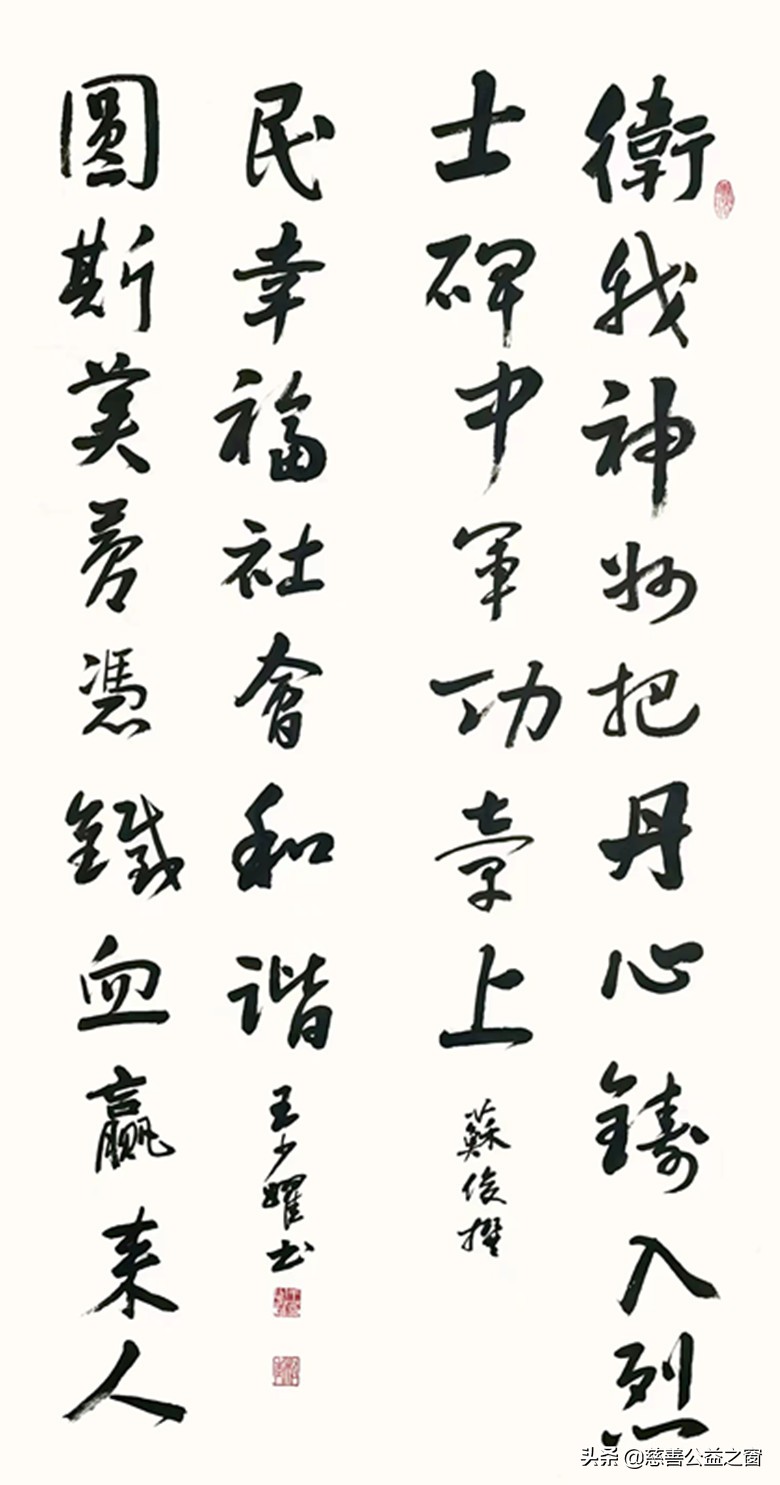 衛我神州把丹心鑄入烈
士碑中軍功章上
蘇俊撰
圓斯美夢憑鐵血贏来人
民幸福社會和諧
王少書
头条 @慈善公益之窗